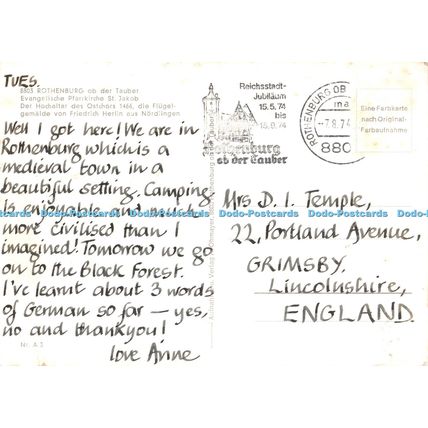 TUES.
8803 ROTHENBURG ob der Tauber
Evangelische Pfarrkirche St. Jakob
Der Hochaltar des Ostchors 1466, die Flügel-
gemälde von Friedrich Herlin aus Nördlingen
Well I got here! We are in
Rothenburg which is a
medieval town in a
beautiful setting. Camping
is enjoyable and much
more civilised than I
imagined! Tomorrow we go
on to the Black Forest.
I've learnt about 3 words
of German so far — yes,
no and thankyou!
love Anne
Nr. A 3
Reichsstadt-
Jubiläum
15.5.74
bis
15.9.74
Rothenburg
ob der Tauber
ROTHENBURG OB
-7.8.74
880
Eine Farbkarte
nach Original-
Farbaufnahme
Mrs D. I. Temple,
22, Portland Avenue,
GRIMSBY.
Lincolnshire,
ENGLAND.
Dodo-Postcards Dodo-Postcards Dodo-Postcards Dodo-Postcards Dodo-Postcards